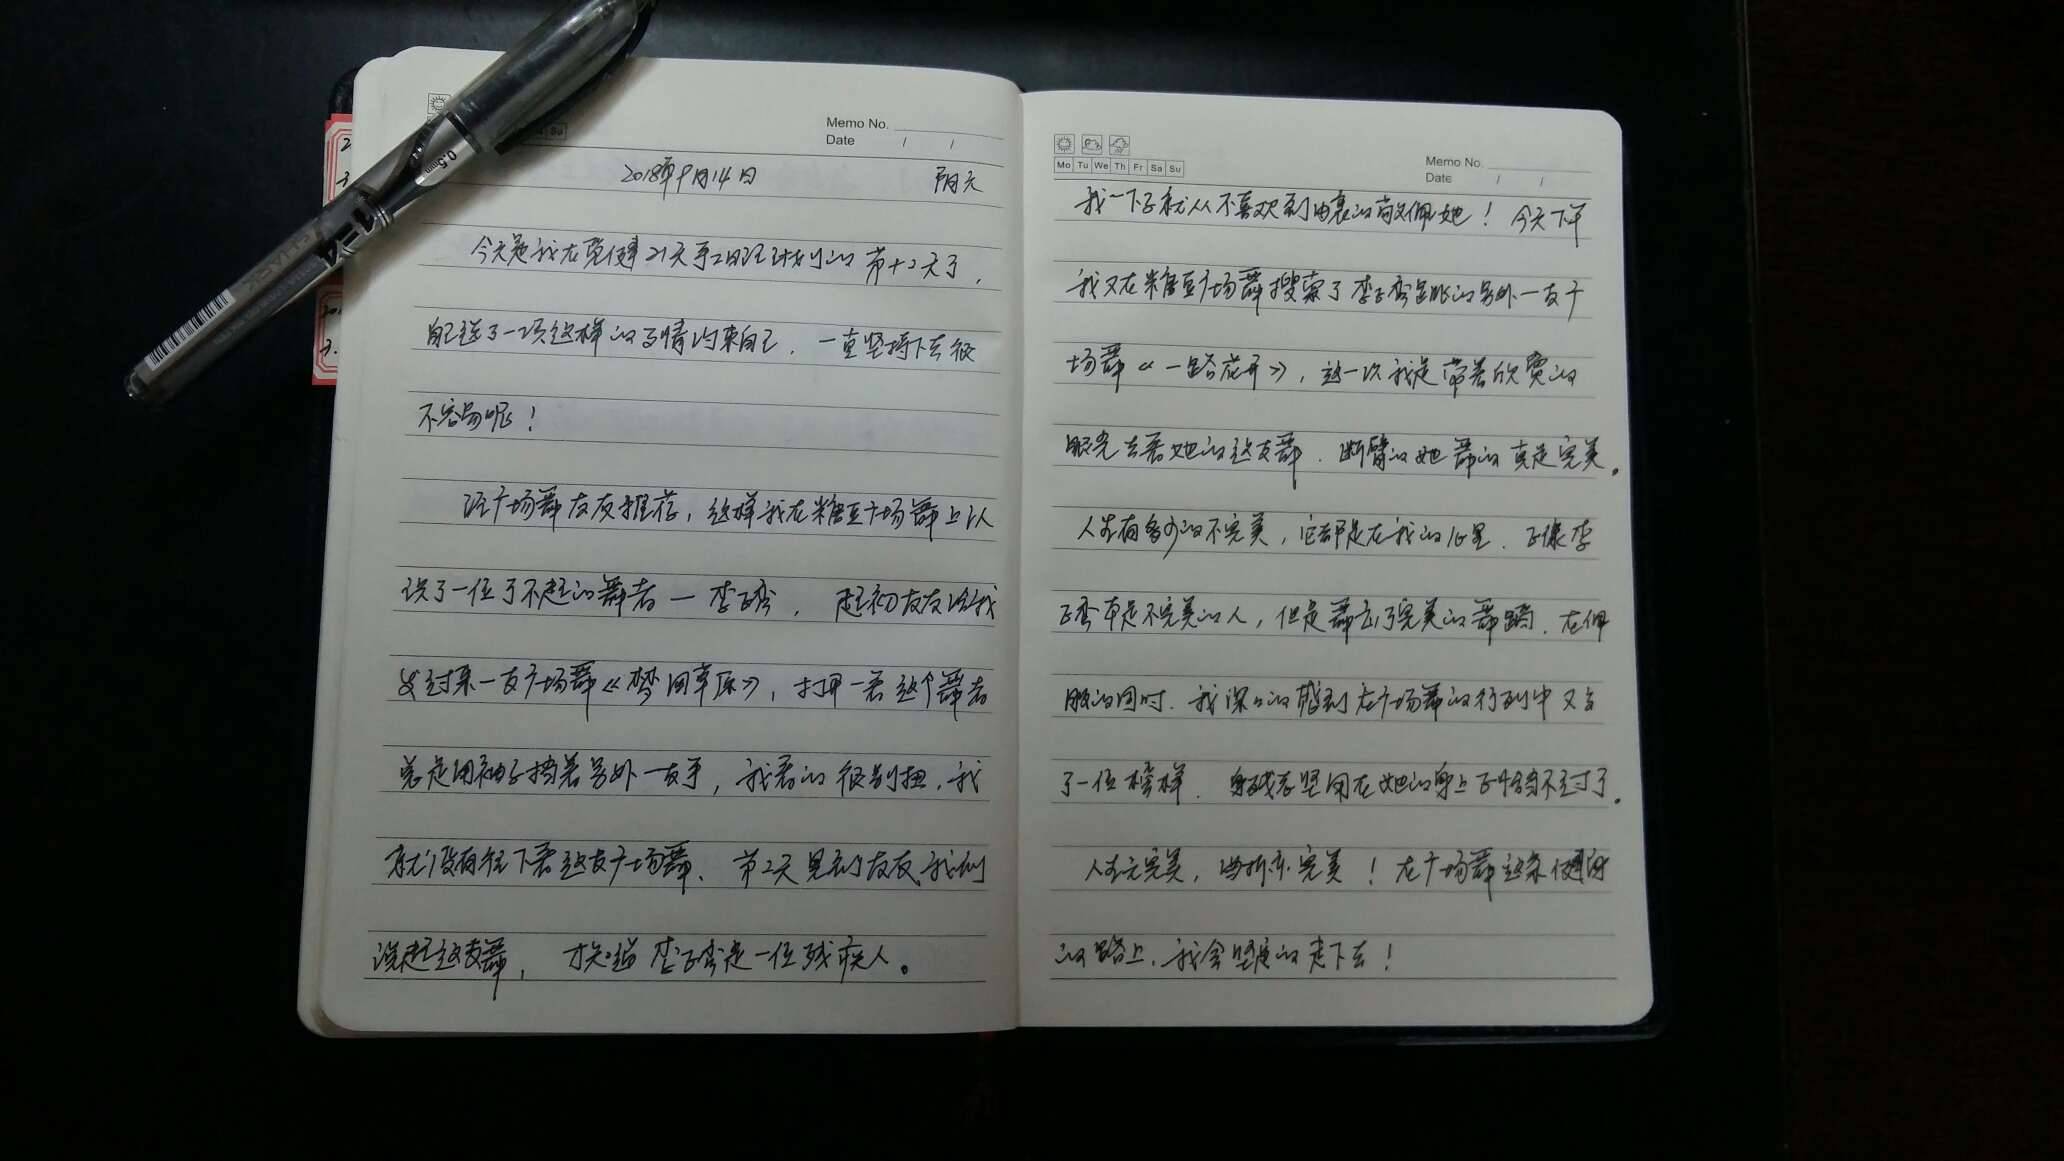 Memo No.
Date / /
2018年9月14日 阴天
今天是我在 21天 计划的第十二天了，
自己选了一项这样的事情约束自己，一直坚持下去很
不容易呢！
经广场舞友友推荐，这样我在糖豆广场舞上认
识了一位了不起的舞者一李子奔，起初友友给我
发过来一支广场舞《梦回草原》，打开一看这个舞者
总是用袖子挡着另外一支手，我看的很别扭，我
就没有往下看这支广场舞、第2天见到友友，我们
说起这支舞，才知道李子奔是一位残疾人。
Mo Tu We Th Fr Sa Su
Memo No.
Date / /
我一下子就从不喜欢到由衷的敬佩她！今天下午
我又在糖豆广场舞搜索了李子奔跳的另外一支广
场舞《一路花开》，这一次我是带着欣赏的
眼光去看她的这支舞，断臂的她舞的真是完美。
人生有多少的不完美，它都是在我的心里，子像李
子奔本是不完美的人，但是舞出了完美的舞蹈，在佩
服的同时，我深深的感到在广场舞的行列中又多
了一位榜样，身残志坚用在她的身上子恰当不过了。
人生无完美，曲折亦完美！在广场舞这条健身
的路上，我会坚定的走下去！
0.5mm